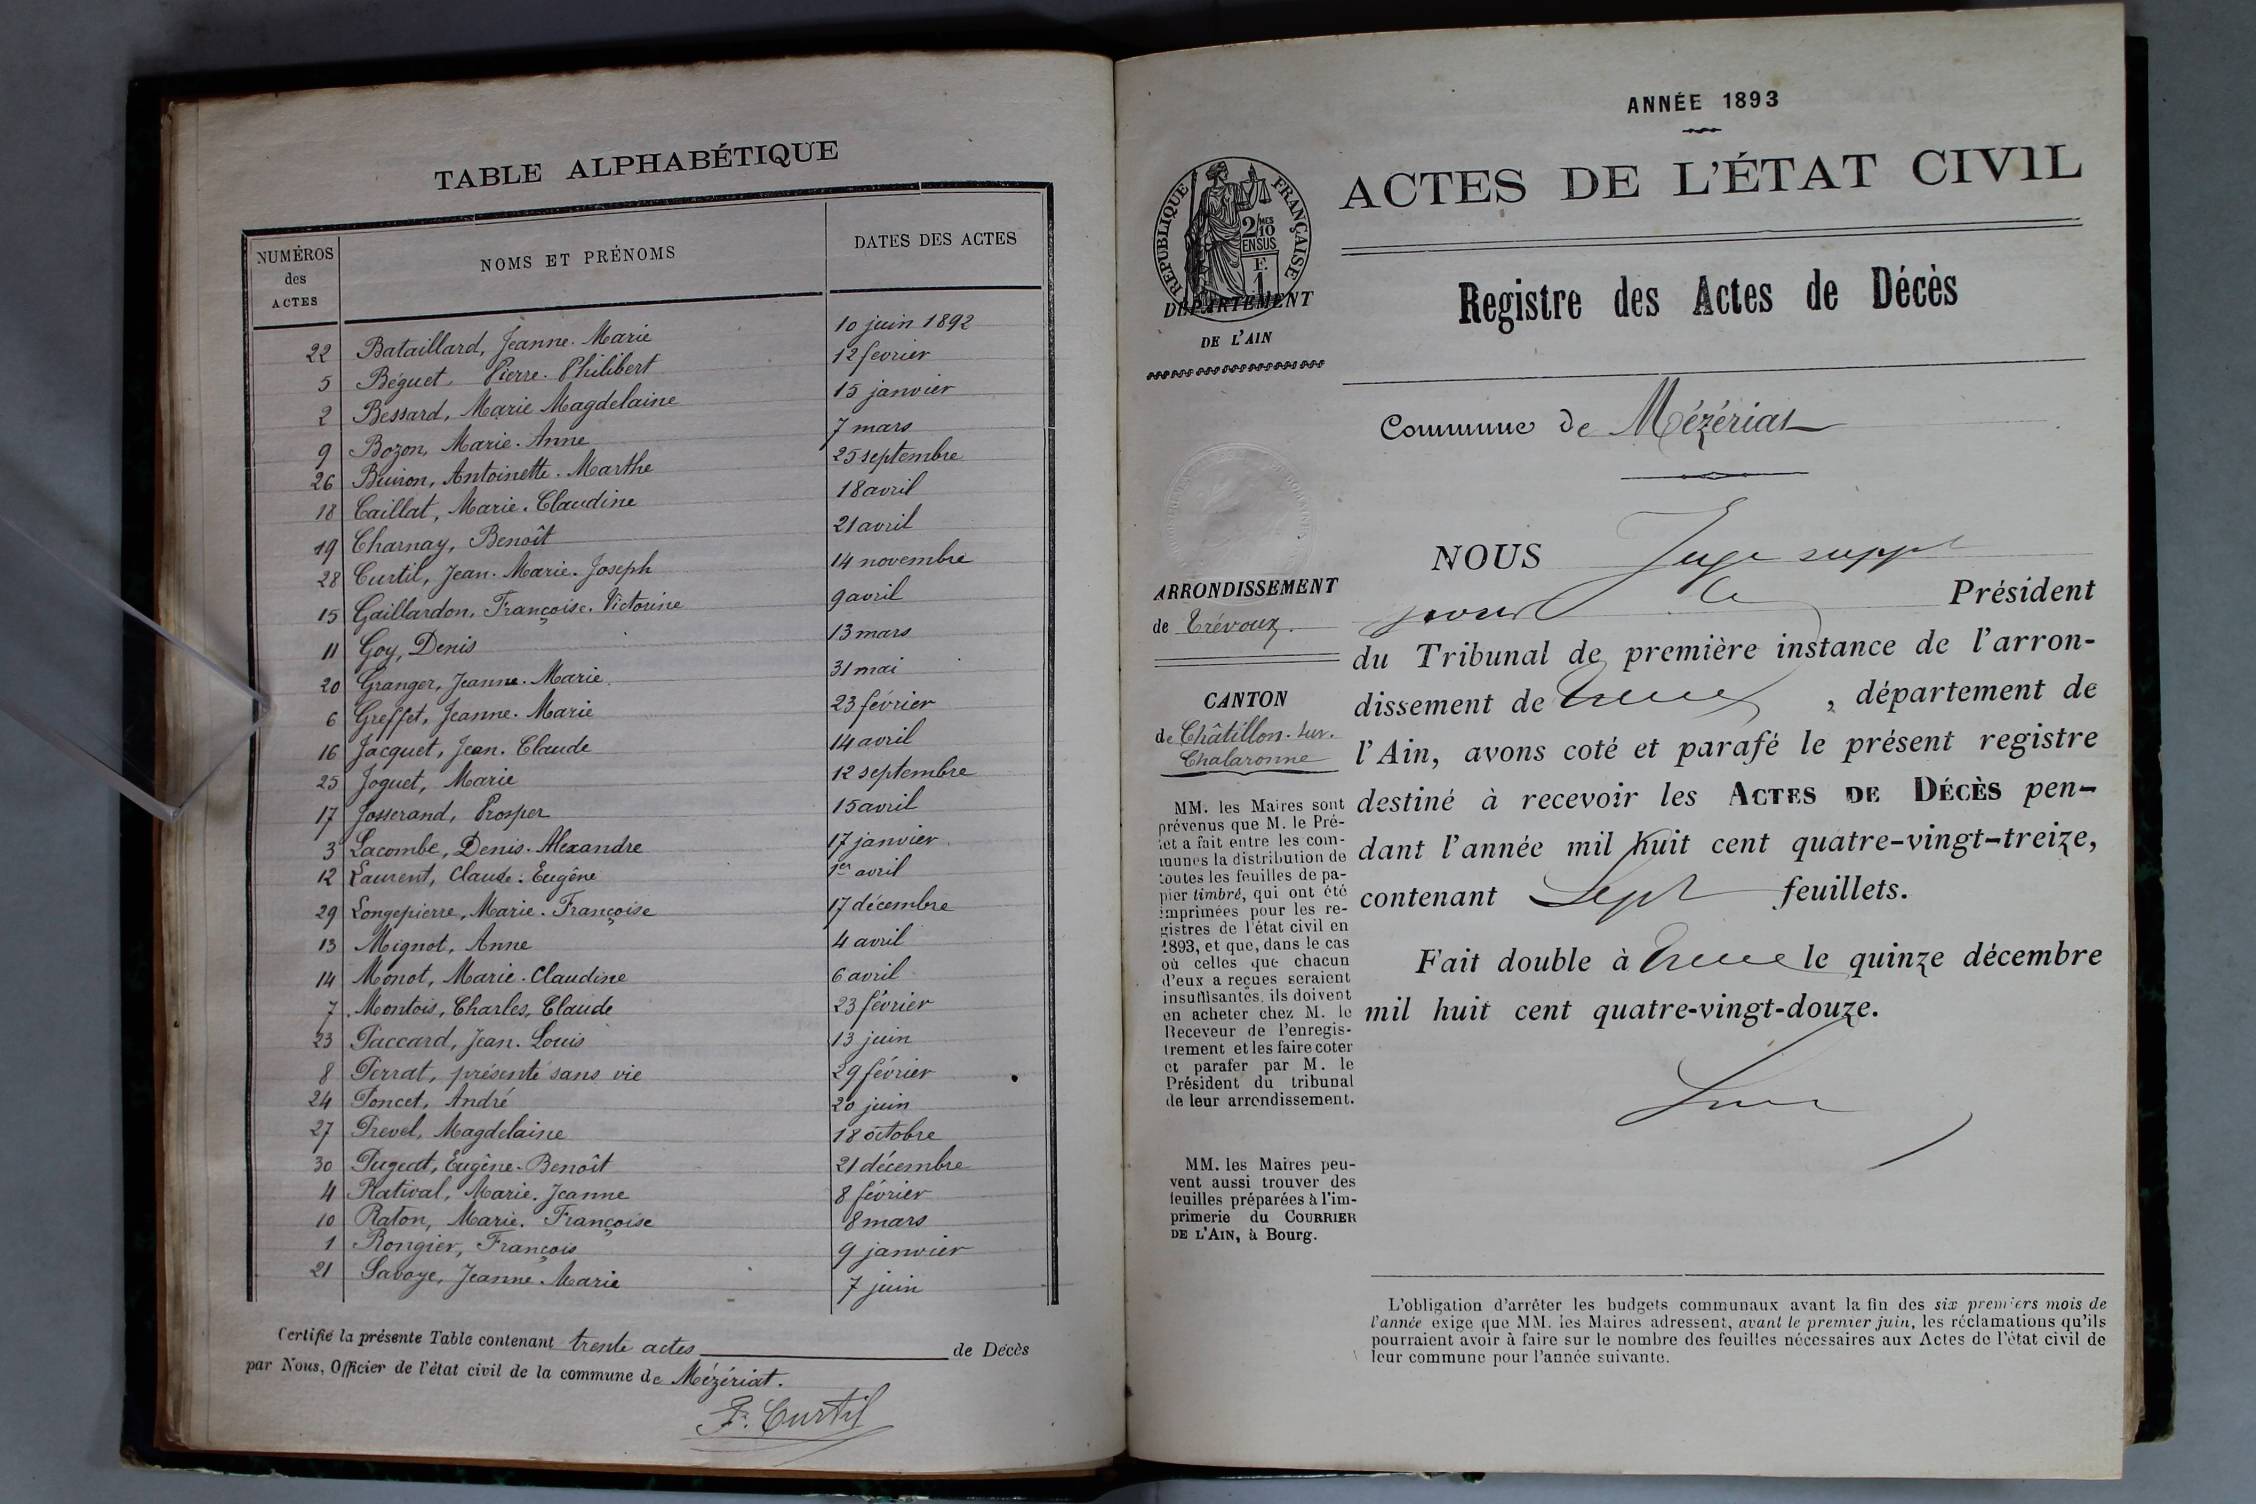 TABLE ALPHABÉTIQUE
NUMÉROS des ACTES NOMS ET PRÉNOMS DATES DES ACTES
22 Bataillard, Jeanne-Marie 10 juin 1892
5 Béguet, Pierre-Philibert 12 février
2 Bessard, Marie Magdelaine 15 janvier
9 Bozon, Marie-Anne 7 mars
26 Buiron, Antoinette-Marthe 25 septembre
18 Caillat, Marie-Claudine 18 avril
19 Charnay, Benoît 21 avril
28 Curtil, Jean-Marie-Joseph 14 novembre
15 Gaillardon, Françoise-Victorine 9 avril
11 Goy, Denis 13 mars
20 Granger, Jeanne-Marie 31 mai
6 Greffet, Jeanne-Marie 23 février
16 Jacquet, Jean-Claude 14 avril
25 Joguet, Marie 12 septembre
17 Josserand, Prosper 15 avril
3 Lacombe, Denis-Alexandre 17 janvier
12 Laurent, Claude-Eugène 1er avril
29 Longepierre, Marie-Françoise 17 décembre
13 Mignot, Anne 4 avril
14 Monot, Marie-Claudine 6 avril
7 Montois, Charles, Claude 23 février
23 Paccard, Jean-Louis 13 juin
8 Perrat, présenté sans vie 29 février
24 Poncet, André 20 juin
27 Prevel, Magdelaine 18 octobre
30 Pugeat, Eugène-Benoît 21 décembre
4 Rativat, Marie-Jeanne 8 février
10 Raton, Marie-Françoise 8 mars
1 Rongier, François 9 janvier
21 Savoye, Jeanne-Marie 7 juin
Certifié la présente Table contenant trente actes de Décès
par Nous, Officier de l'état civil de la commune de Mézériat.
F. Curtil
ANNÉE 1893
ACTES DE L'ÉTAT CIVIL
RÉPUBLIQUE FRANÇAISE
2/10 MES
EN SUS
F.
1
DÉPARTEMENT
DE L'AIN
Registre des Actes de Décès
Commune de Mézériat
ARRONDISSEMENT
de Trévoux.
CANTON
de Châtillon-sur-
Chalaronne
MM. les Maires sont
prévenus que M. le Pré-
fet a fait entre les com-
munes la distribution de
toutes les feuilles de pa-
pier timbré, qui ont été
imprimées pour les re-
gistres de l'état civil en
1893, et que, dans le cas
où celles que chacun
d'eux a reçues seraient
insuffisantes, ils doivent
en acheter chez M. le
Receveur de l'enregis-
trement et les faire coter
et parafer par M. le
Président du tribunal
de leur arrondissement.
MM. les Maires peu-
vent aussi trouver des
feuilles préparées à l'im-
primerie du COURRIER
DE L'AIN, à Bourg.
NOUS Juge suppt
pour le Président
du Tribunal de première instance de l'arron-
dissement de Trevoux, département de
l'Ain, avons coté et parafé le présent registre
destiné à recevoir les ACTES DE DÉCÈS pen-
dant l'année mil huit cent quatre-vingt-treize,
contenant Sept feuillets.
Fait double à Trevoux le quinze décembre
mil huit cent quatre-vingt-douze.
L'obligation d'arrêter les budgets communaux avant la fin des six premiers mois de
l'année exige que MM. les Maires adressent, avant le premier juin, les réclamations qu'ils
pourraient avoir à faire sur le nombre des feuilles nécessaires aux Actes de l'état civil de
leur commune pour l'année suivante.